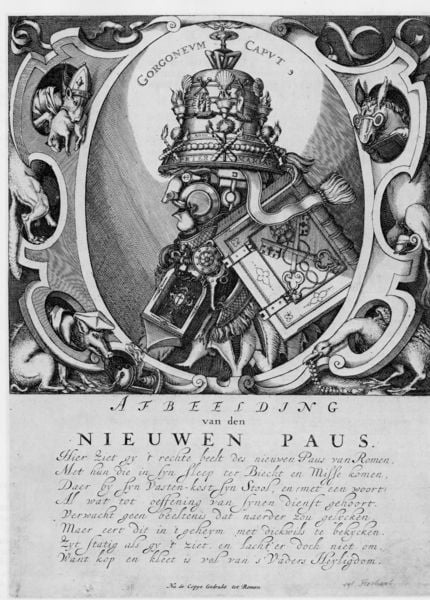 GORGONEVM CAPVT,
AFBEELDING
van den
NIEUWEN PAUS.
Hier ziet gy 't rechte beelt des nieuwen Paus van Romen,
Met hun die in syn sleep ter Biecht en Misse komen,
Daer by syn Vasten-kost, syn Stool, en, met een woort,
Al wat tot oeffening van synen dienst gehoort.
Verwacht geen beeltenis dat naerder zou gelycken,
Maer eert dit in 't geheym met dickwils te bekycken.
Zyt statig als gy 't ziet, en lacht er doch niet om,
Want kop en kleet is vol van 's Vaders Heyligdom.
Na de Coppe Gedruckt tot Romen